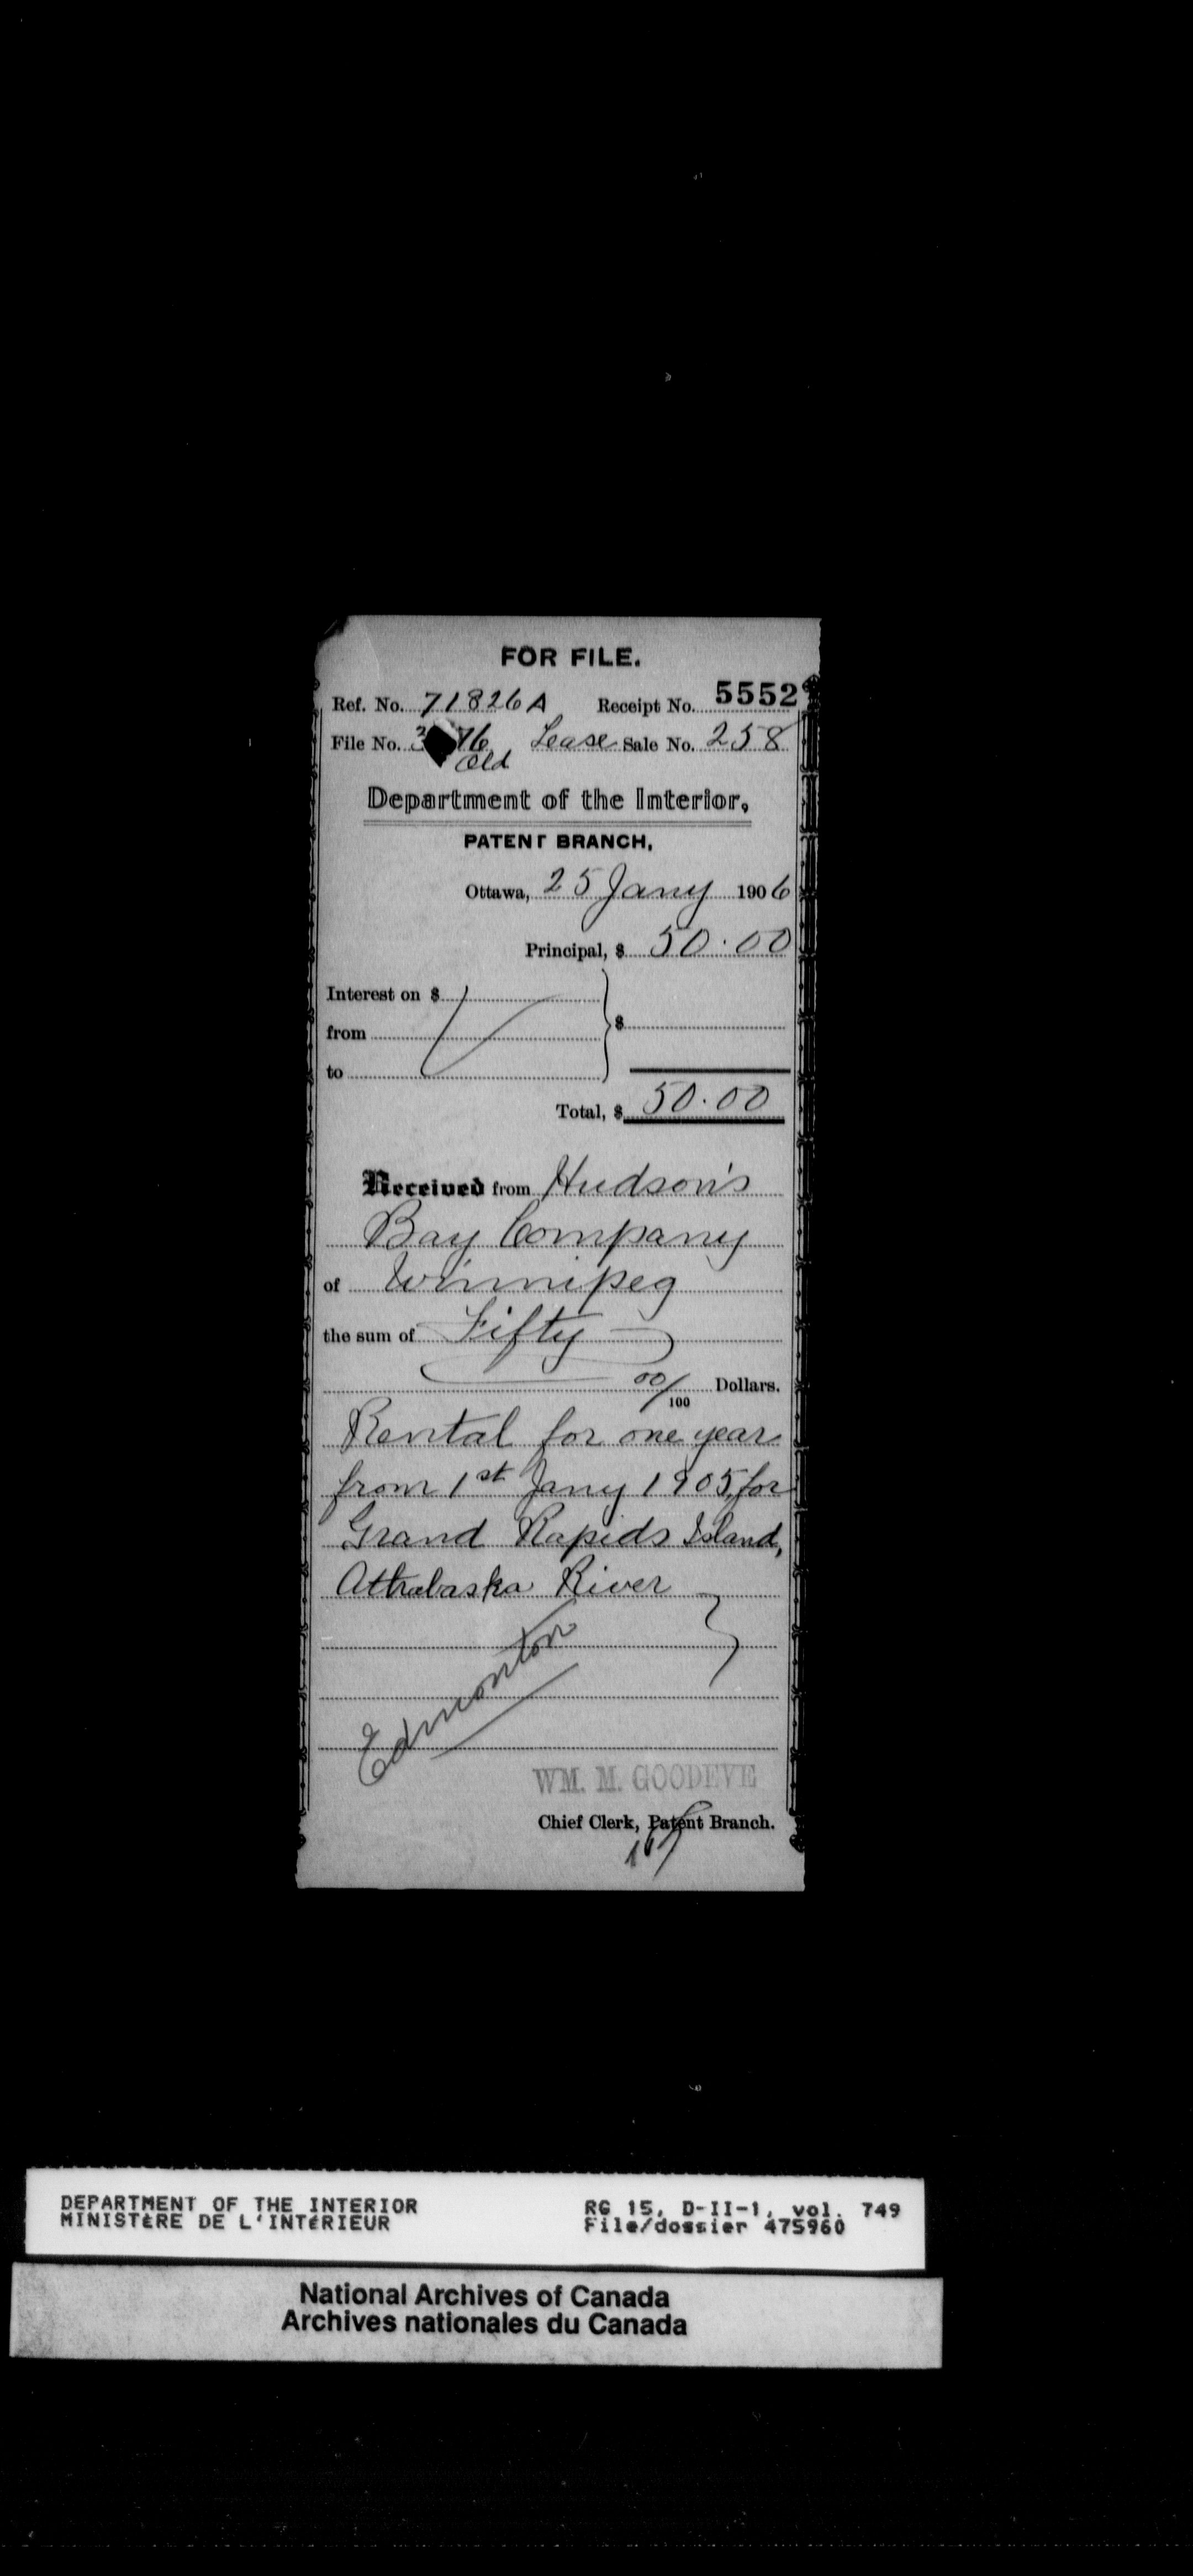 FOR FILE.
Ref. No. 71826 A Receipt No. 5552
File No. Lease Sale No. 258
Old
Department of the Interior,
PATENT BRANCH,
Ottawa, 25 Jany 1906
Principal, $ 50.00
Interest on $
from $
to
Total, $ 50.00
Received from Hudson's
Bay Company
of Winnipeg
the sum of Fifty
00/100 Dollars.
Rental for one year
from 1st Jany 1905 for
Grand Rapids Island,
Athabaska River
Edmonton
WM. M. GOODEVE
Chief Clerk, Patent Branch.
DEPARTMENT OF THE INTERIOR RG 15, D-II-1, vol. 749
MINISTÈRE DE L'INTÉRIEUR File/dossier 475960
National Archives of Canada
Archives nationales du Canada